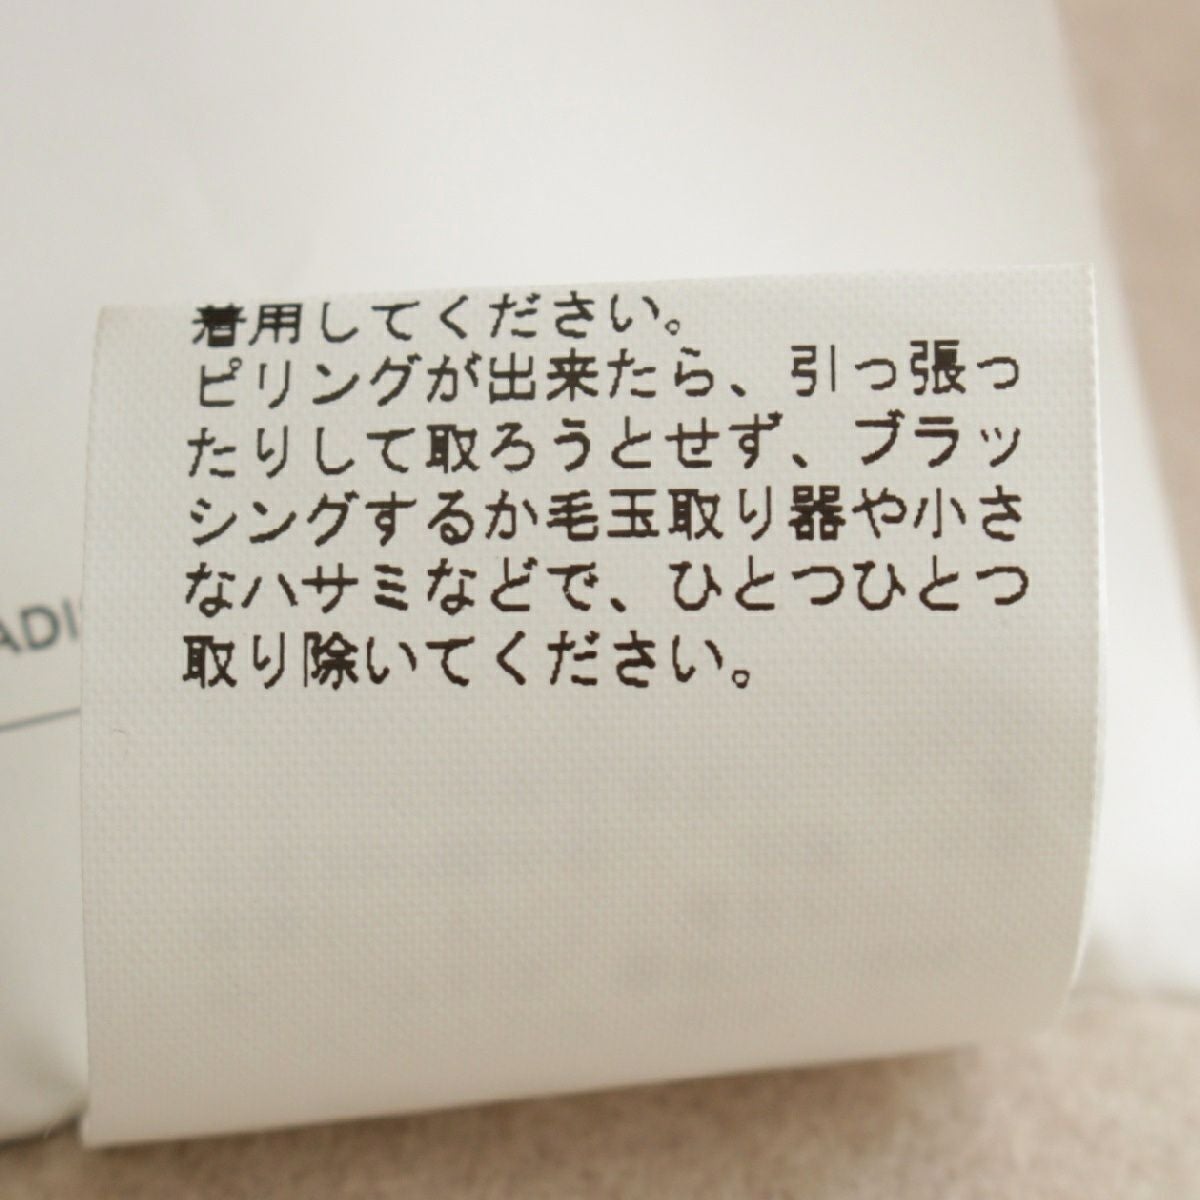 着用してください。
ピリングが出来たら、引っ張っ
たりして取ろうとせず、ブラッ
シングするか毛玉取り器や小さ
なハサミなどで、ひとつひとつ
取り除いてください。